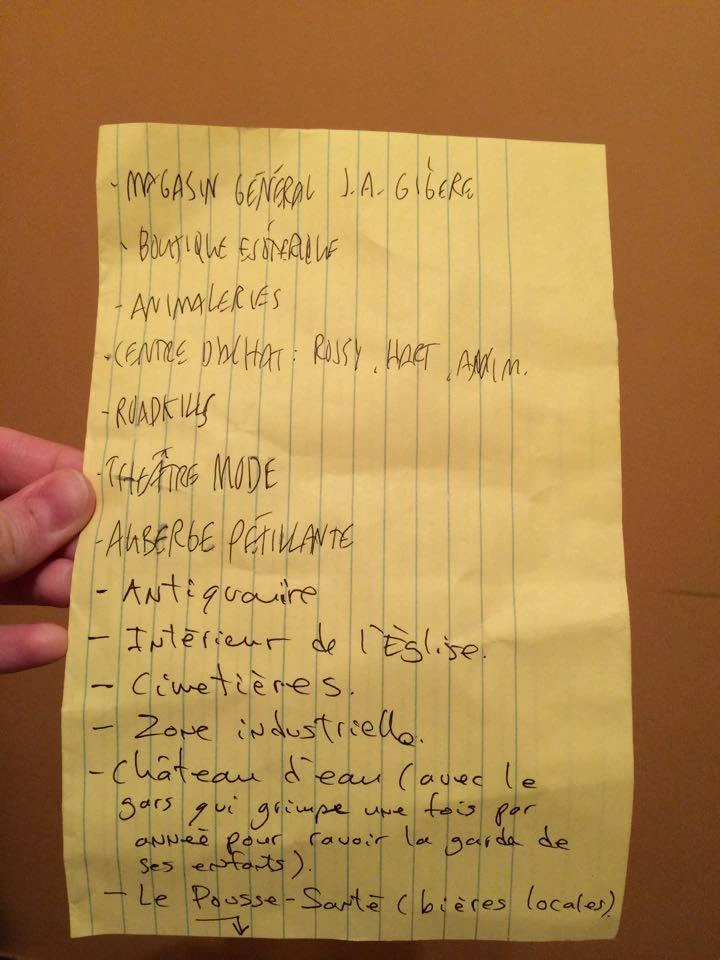 - MAGASIN GÉNÉRAL J.A. GIGÈRE
- BOUTIQUE ESOTÉRIQUE
- ANIMALERIES
- CENTRE D'ACHAT : ROSSY, HART,
- ROADKILLS
- THÉÂTRE MODE
- AUBERGE PÉTILLANTE
- Antiquaire
- Intérieur de l'Église.
- Cimetières.
- Zone industrielle.
- Château d'eau (avec le
gars qui grimpe une fois par
année pour ravoir la garde de
ses enfants).
- Le Pousse-Santé (bières locales)